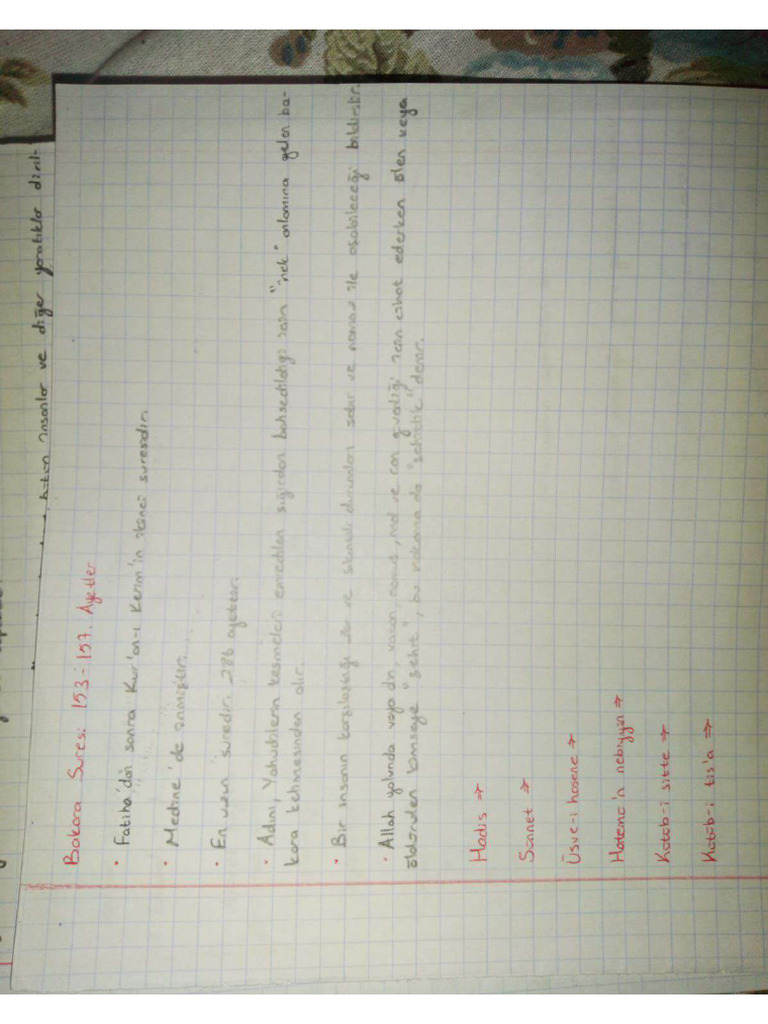 bütün insanlar ve diğer yaratıklar diril-
Bakara Suresi 153-157. Ayetler
• Fatiha'dan sonra Kur'an-ı Kerim'in ikinci suresidir.
• Medine'de inmiştir.
• En uzun suredir. 286 ayettir.
• Adını, Yahudilerin kesmeleri emredilen sığırdan bahsedildiği için "inek" anlamına gelen ba-
kara kelimesinden alır.
• Bir insanın karşılaştığı zor ve sıkıntılı durumları sabır ve namaz ile aşabileceği bildirilir.
• Allah yolunda veya din, vatan, namus, mal ve can güvenliği için cihat ederken ölen veya
öldürülen kimseye "şehit", bu makama da "şehitlik" denir.
Hadis ⇒
Sünnet ⇒
Üsve-i hasene ⇒
Hatemü'n nebiyyin ⇒
Kütüb-i sitte ⇒
Kütüb-i tis'a ⇒